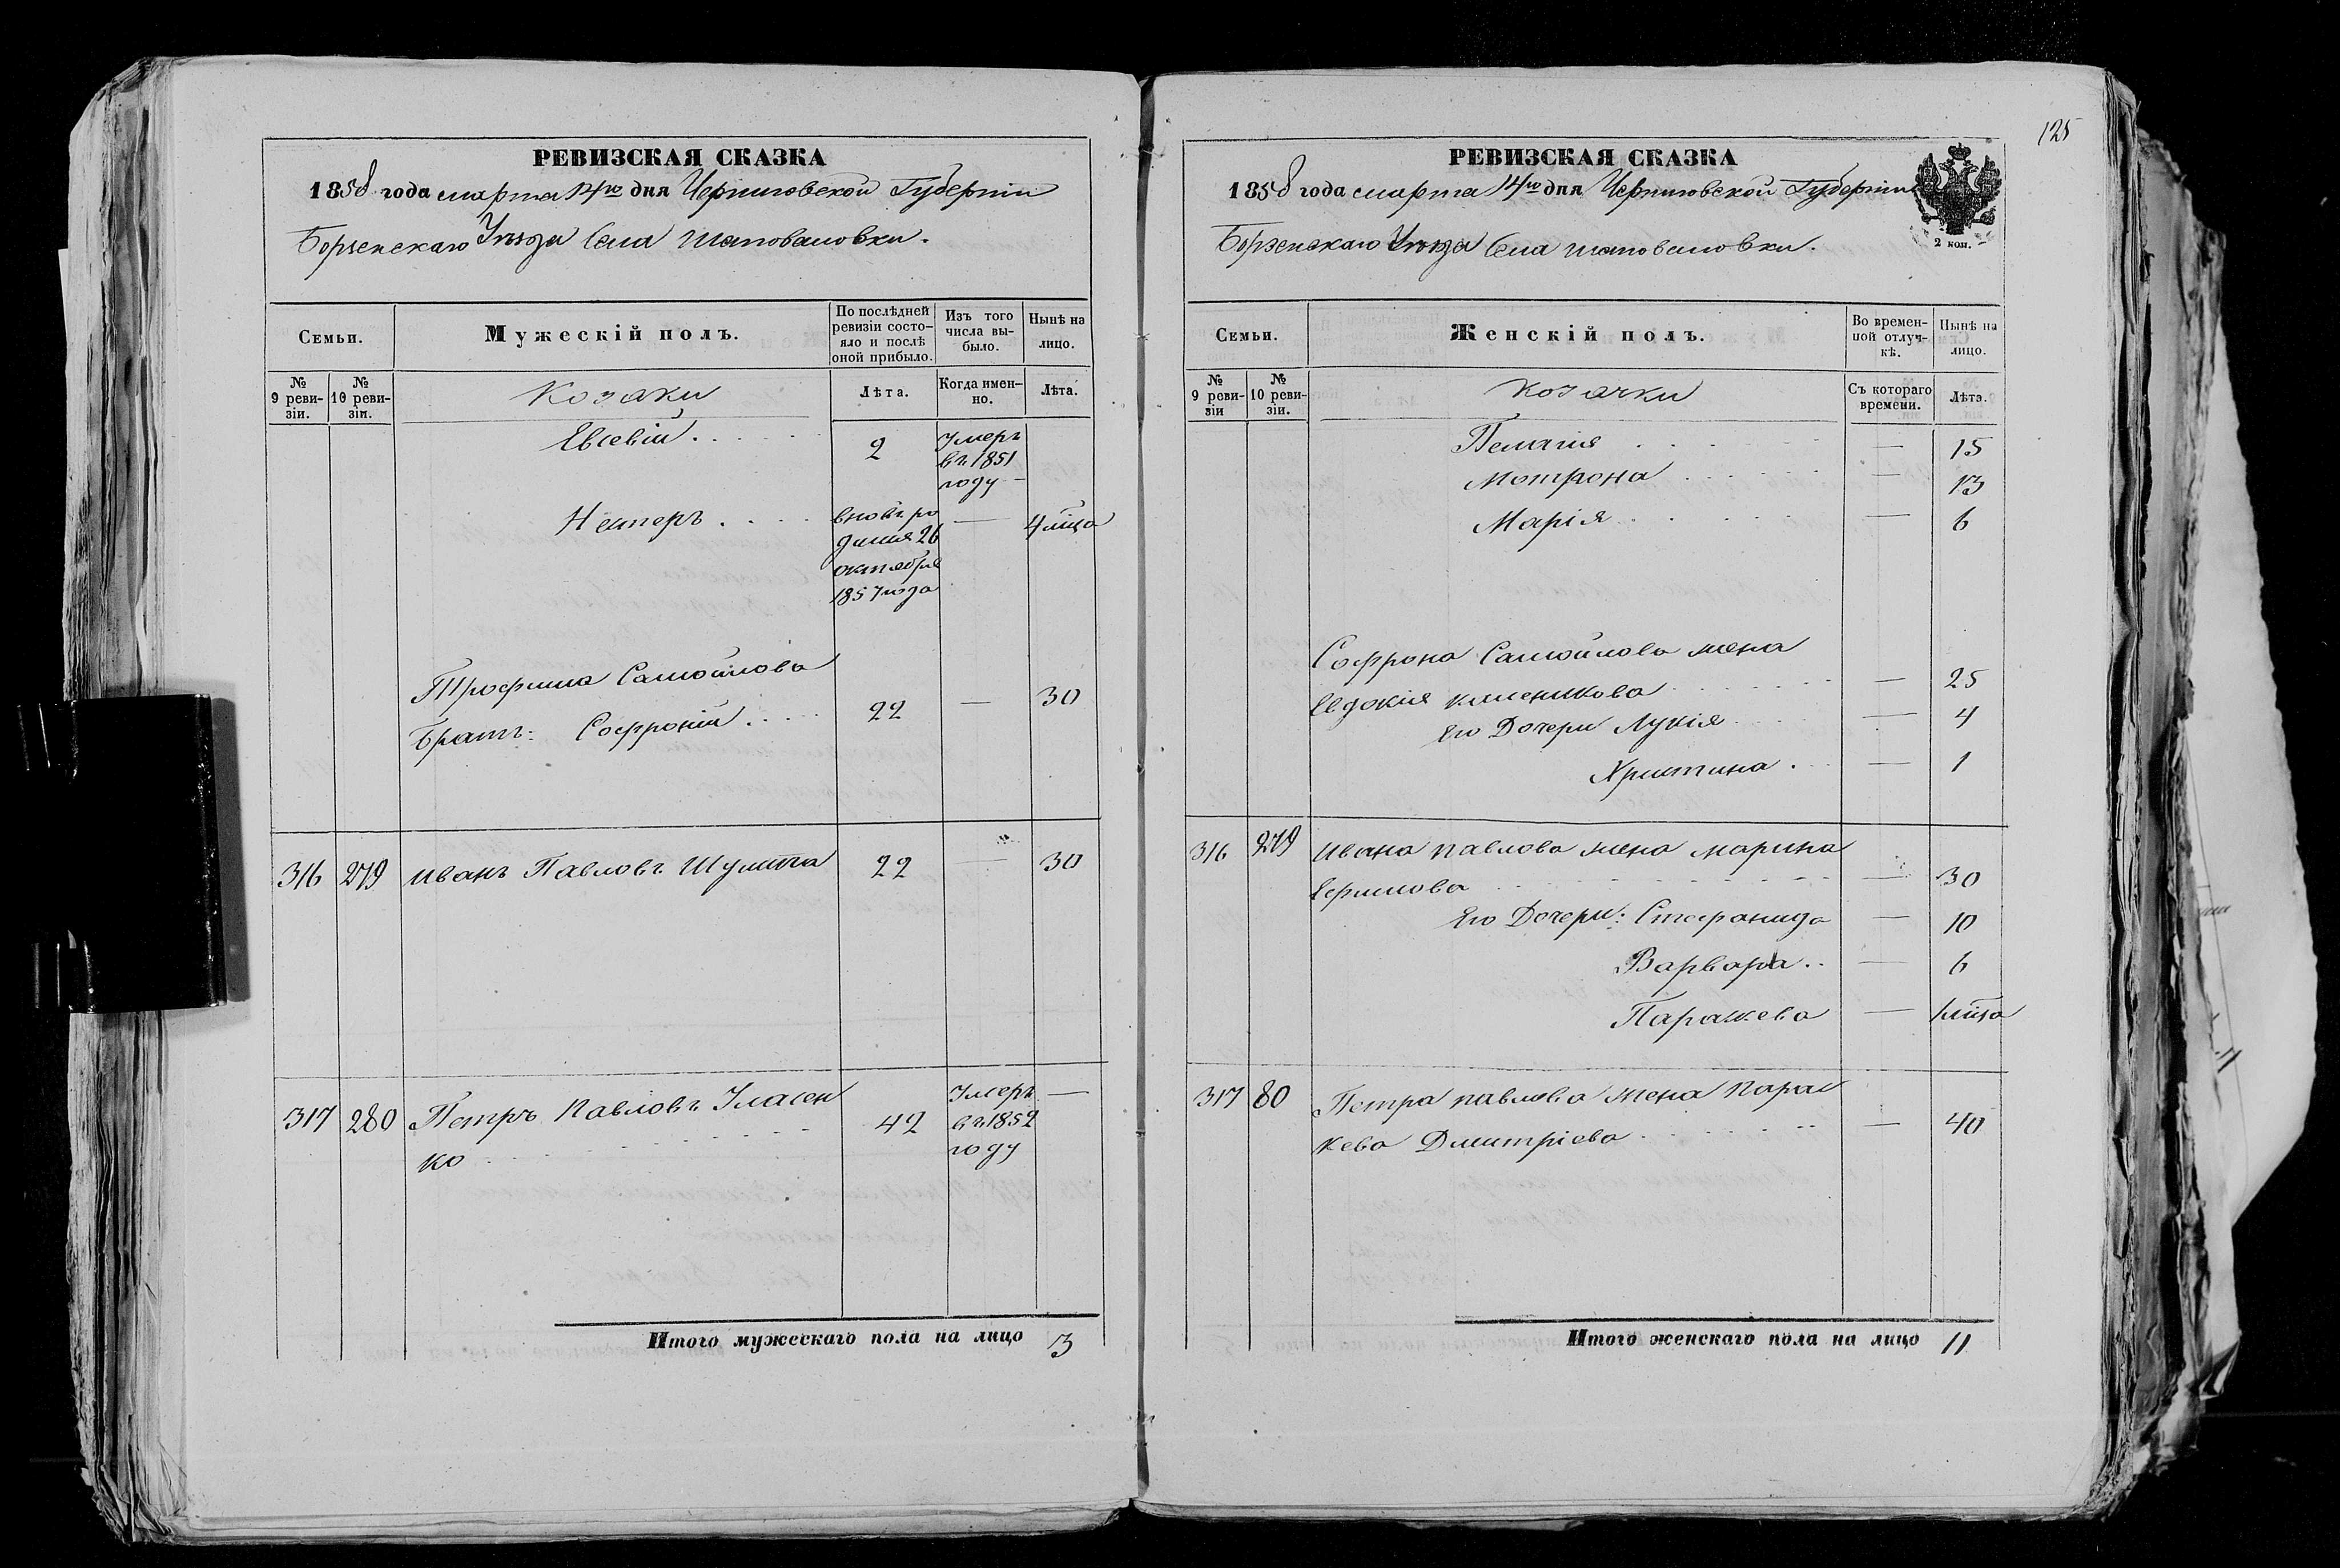 РЕВИЗСКАЯ СКАЗКА
1858 года марта 14го дня Черниговской Губерніи
Борзенскаго Уѣзда Села Шаповаловки.
Семьи.
Мужескій полъ.
По послѣдней ревизіи состояло и послѣ оной прибыло.
Изъ того числа выбыло.
Нынѣ на лицо.
№ 9 ревизіи.
№ 10 ревизіи.
Козаки
Лѣта.
Когда именно.
Лѣта.
Евсевій . . . . . 2 Умеръ
въ 1851
году
Несторъ . . . . вновь ро — 4 міца
26
октября
1857 года
Трофима Самойлова
Братъ: Софроній . . . . 22 — 30
316 279 Иванъ Павловъ Шулика 22 — 30
317 280 Петръ Павловъ Усасен 42 Умеръ —
ко въ 1852
году
Итого мужескаго пола на лицо 3
125
РЕВИЗСКАЯ СКАЗКА
1858 года марта 14го дня Черниговской Губерніи
Борзенскаго Уѣзда Села Шаповаловки.
2 коп.
Семьи.
Женскій полъ.
Во временной отлучкѣ.
Нынѣ на лицо.
№ 9 ревизіи
№ 10 ревизіи.
Козачки
Съ котораго времени.
Лѣта.
Пелагія . . . . — 15
Мотрона . . . . — 13
Марія . . . . — 6
Софрона Самойлова жена
Евдокія Клименкова — 25
Его Дочери Лукія — 4
Христина . — 1
316 279 Ивана Павлова жена Марина
— 30
Его Дочери: Стефанида — 10
Варвара .. — 6
Параскева — 1 міца
317 80 Петра Павлова жена Парас
кева Дмитріева — 40
Итого женскаго пола на лицо 11